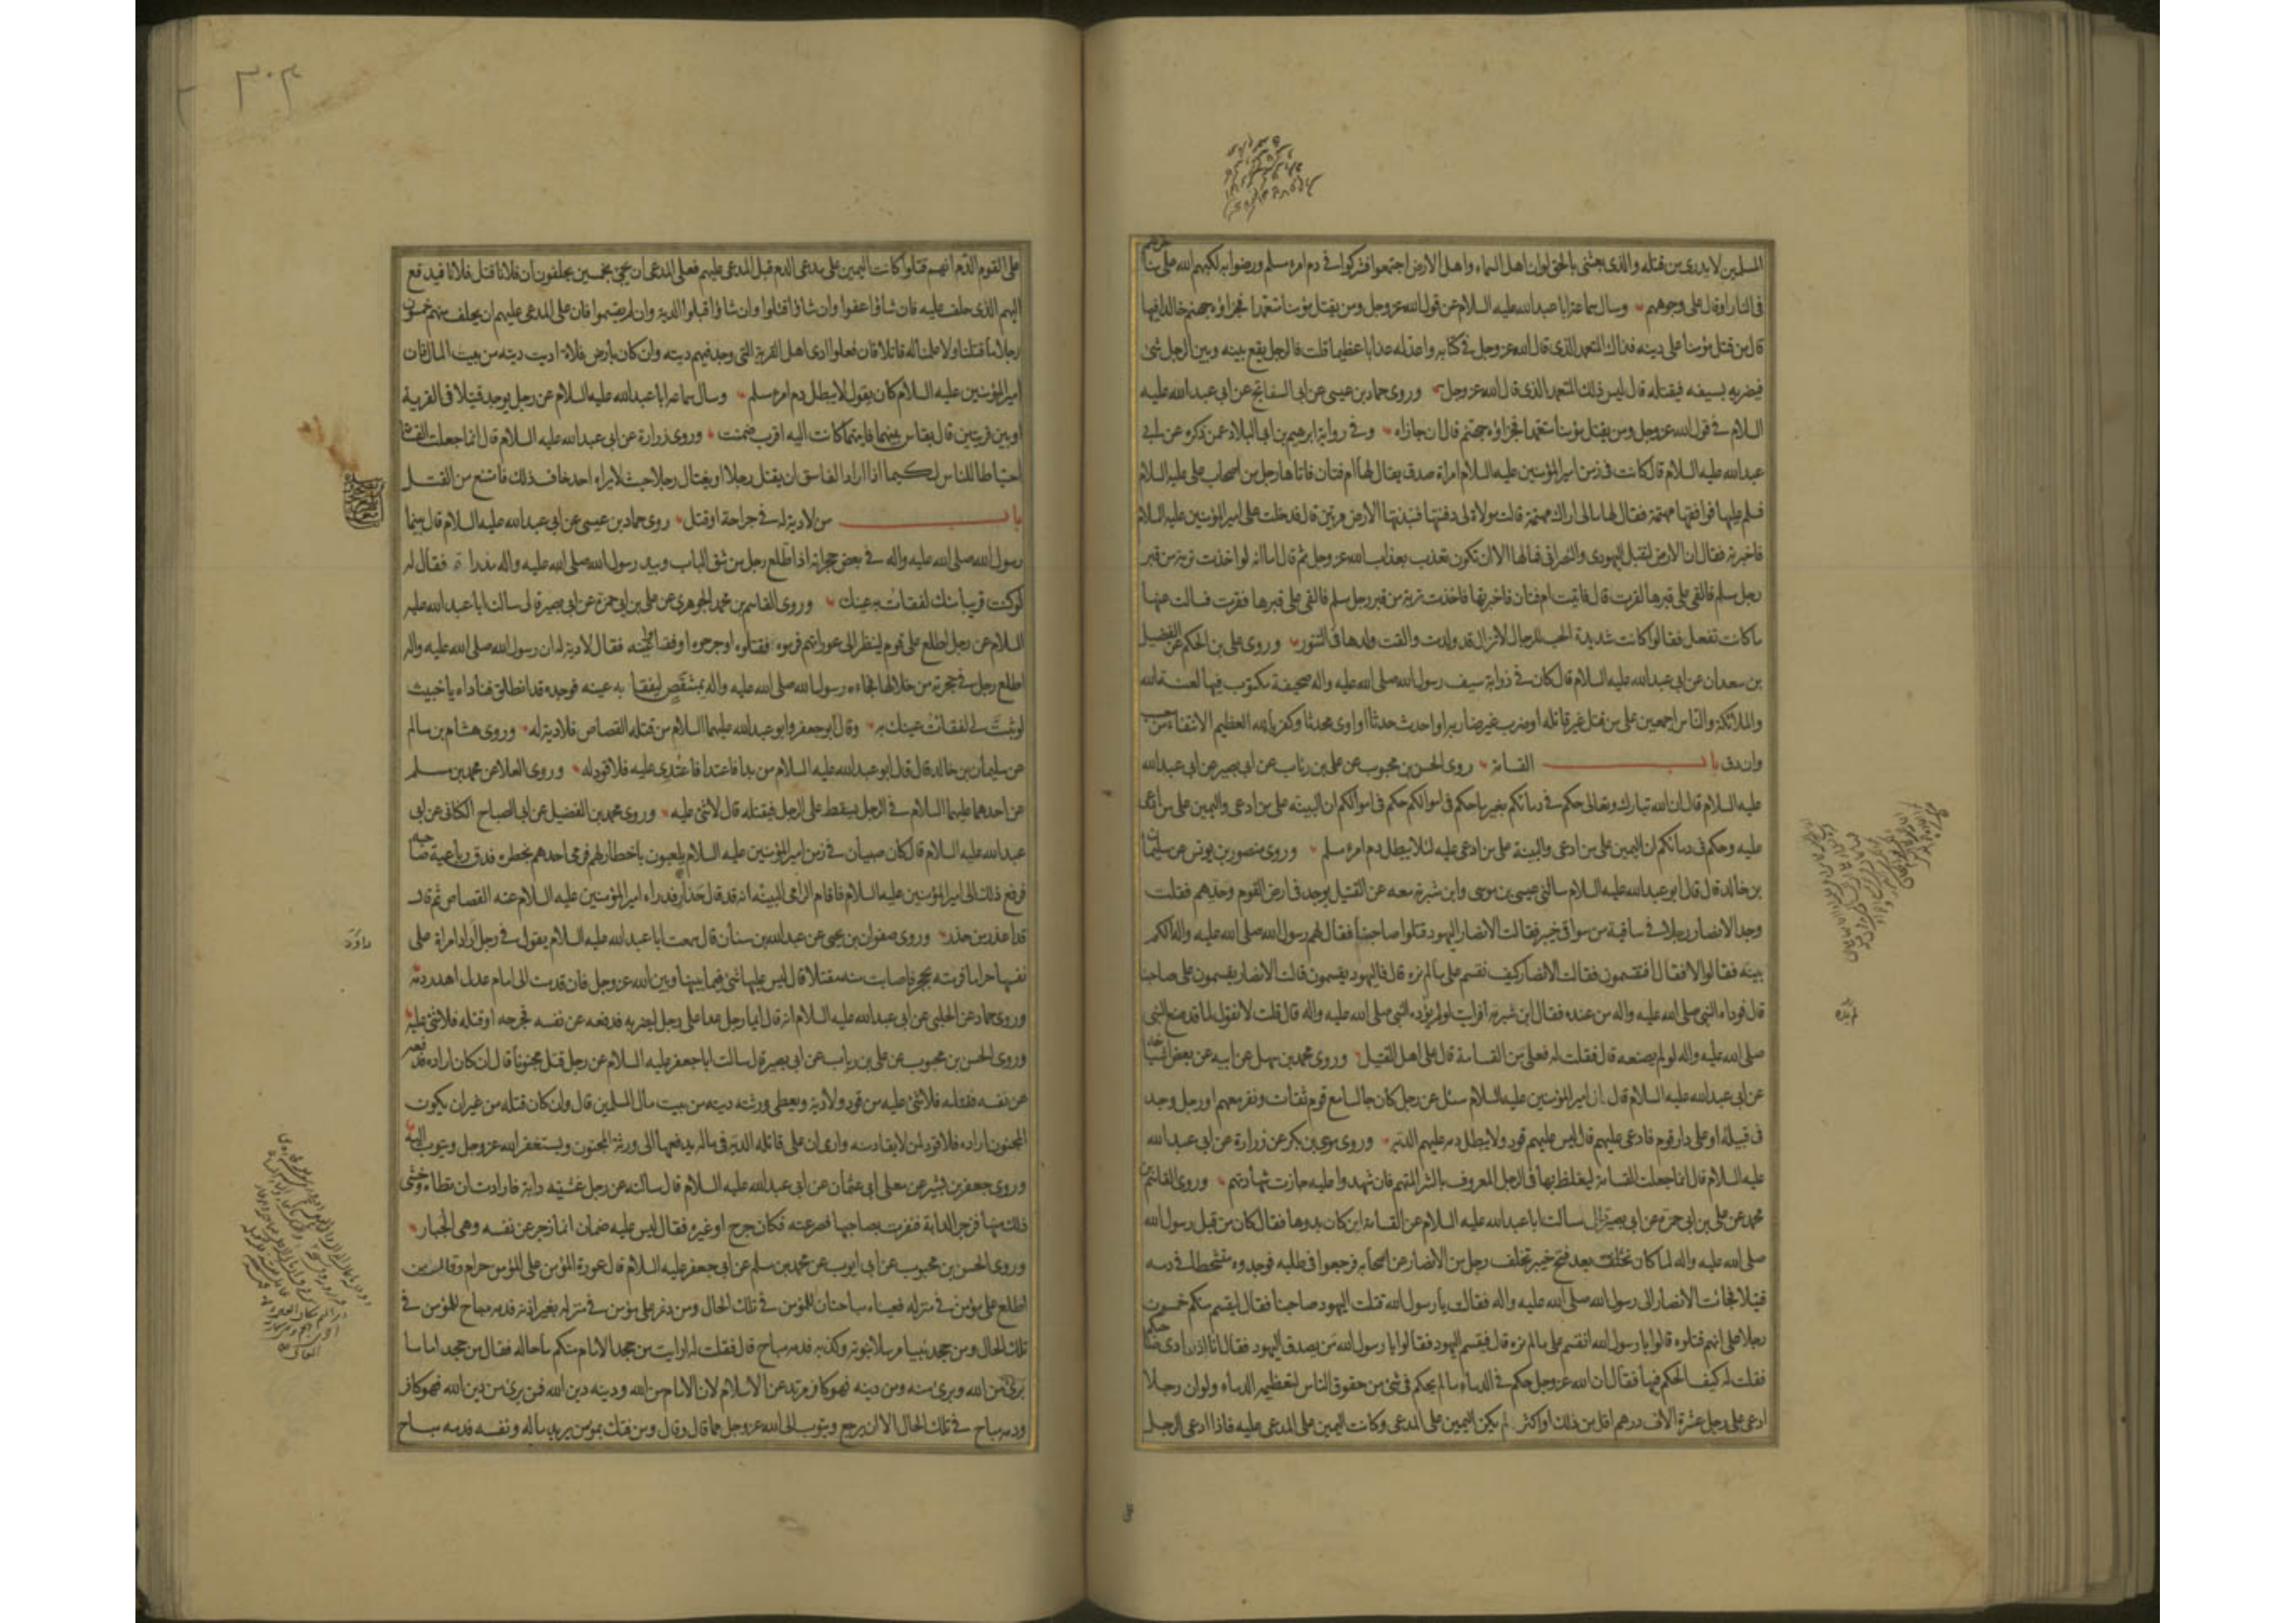 المسلمين لا يدرى من قتله والذى بعثنى بالحق لو ان اهل السماء واهل الارض اجتمعوا فشركوا فى دم امرء مسلم ورضوا به لكبهم الله على مناخرهم
فى النار او قال على وجوههم وسال سماعة ابا عبد الله عليه السلام عن قول الله عز وجل ومن يقتل مؤمنا متعمدا فجزاؤه جهنم خالدا فيها
قال من قتل مؤمنا على دينه فذاك المتعمد الذى قال الله عز وجل فى كتابه واعد له عذابا عظيما قلت فالرجل يقع بينه وبين الرجل شئ
فيضربه بسيفه فيقتله قال ليس ذلك المتعمد الذى قال الله عز وجل وروى حماد بن عيسى عن ابى السفاتج عن ابى عبد الله عليه
السلام فى قول الله عز وجل ومن يقتل مؤمنا متعمدا فجزاؤه جهنم قال ان جازاه وفى رواية ابرهيم بن ابى البلاد عمن ذكره عن ابى
عبد الله عليه السلام قال كانت فى زمن امير المؤمنين عليه السلام امراة صدق يقال لها ام فتان فاتاها رجل من اصحاب على عليه السلام
فسلم عليها فوافقها مهتمة فقال لها مالى اراك مهتمة قالت مولاة لى دفنتها فنبذتها الارض مرتين قال فدخلت على امير المؤمنين عليه السلام
فاخبرته فقال ان الارض لتقبل اليهودى والنصرانى فمالها الا ان تكون تعذب بعذاب الله عز وجل ثم قال اما انه لو اخذت تربة من قبر
رجل مسلم فالقى على قبرها لقرت قال فاتيت ام فتان فاخبرتها فاخذت تربة من قبر رجل مسلم فالقى على قبرها فقرت فسالت عنها
ما كانت تفعل فقالوا كانت شديدة الحب للرجال لا تزال قد ولدت والقت ولدها فى التنور وروى على بن الحكم عن الفضيل
بن سعدان عن ابى عبد الله عليه السلام قال كان فى ذوابة سيف رسول الله صلى الله عليه واله صحيفة مكتوب فيها لعنة الله
والملائكة والناس اجمعين على من قتل غير قاتله او ضرب غير ضاربه او احدث حدثا او اوى محدثا وكفر بالله العظيم الانتفاء من حسب
وان دق باب القسامة روى الحسن بن محبوب عن على بن رئاب عن ابى بصير عن ابى عبد الله
عليه السلام قال ان الله تبارك وتعالى حكم فى دمائكم بغير ما حكم فى اموالكم حكم فى اموالكم ان البينة على من ادعى واليمين على من ادعى
عليه وحكم فى دمائكم ان اليمين على من ادعى والبينة على من ادعى عليه لئلا يبطل دم امرء مسلم وروى منصور بن يونس عن سليمان
بن خالد قال قال ابو عبد الله عليه السلام سالنى عيسى بن موسى وابن شبرمة معه عن القتيل يوجد فى ارض القوم وحدهم فقلت
وجد الانصار رجلا فى ساقية من سواقى خيبر فقالت الانصار اليهود قتلوا صاحبنا فقال لهم رسول الله صلى الله عليه واله الكم
بينة فقالوا لا فقال افتقسمون فقالت الانصار كيف نقسم على ما لم نره قال فاليهود يقسمون قالت الانصار يقسمون على صاحبنا
قال فوداه النبى صلى الله عليه واله من عنده فقال ابن شبرمة افرايت لو لم يؤده النبى صلى الله عليه واله قال قلت لا نقول لما قد صنع النبى
صلى الله عليه واله لو لم يصنعه قال فقلت له فعلى من القسامة قال على اهل القتيل وروى محمد بن سهل عن ابيه عن بعض اشياخه
عن ابى عبد الله عليه السلام قال ان امير المؤمنين عليه السلام سئل عن رجل كان جالسا مع قوم ثقات ونفر معهم او رجل وجد
فى قبيلة او على دار قوم فادعى عليهم قال ليس عليهم قود ولا يطل دمه عليهم الدية وروى موسى بن بكر عن زرارة عن ابى عبد الله
عليه السلام قال انما جعلت القسامة ليغلظ بها فى الرجل المعروف بالشر المتهم فان شهدوا عليه جازت شهادتهم وروى القاسم بن
محمد عن على بن ابى حمزة عن ابى بصير قال سالت ابا عبد الله عليه السلام عن القسامة اين كان بدوها فقال كان من قبل رسول الله
صلى الله عليه واله لما كان بعد فتح خيبر تخلف رجل من الانصار عن اصحابه فرجعوا فى طلبه فوجدوه متشحطا فى دمه
قتيلا فجائت الانصار الى رسول الله صلى الله عليه واله فقالت يا رسول الله قتلت اليهود صاحبنا فقال ليقسم منكم خمسون
رجلا على انهم قتلوه قالوا يا رسول الله انقسم على ما لم نره قال فيقسم اليهود فقالوا يا رسول الله من يصدق اليهود فقال انا اذن ادى صاحبكم
فقلت له كيف الحكم فيها فقال ان الله عز وجل حكم فى الدماء ما لم يحكم فى شئ من حقوق الناس لتعظيمه الدماء ولو ان رجلا
ادعى على رجل عشرة الاف درهم اقل من ذلك او اكثر لم يكن اليمين على المدعى وكانت اليمين على المدعى عليه فاذا ادعى الرجل
٣٠٣
على القوم الدم انهم قتلوا كانت اليمين على مدعى الدم قبل المدعى عليهم فعلى المدعى ان يجئ بخمسين يحلفون ان فلانا قتل فلانا فيدفع
اليهم الذى حلف عليه فان شاؤا عفوا وان شاؤا قتلوا وان شاؤا قبلوا الدية وان لم يقسموا فان على المدعى عليهم ان يحلف منهم خمسون
رجلا ما قتلنا ولا علمنا له قاتلا فان فعلوا ادى اهل القرية التى وجد فيهم ديته وان كان بارض فلاة اديت ديته من بيت المال فان
امير المؤمنين عليه السلام كان يقول لا يبطل دم امرء مسلم وسال سماعة ابا عبد الله عليه السلام عن رجل يوجد قتيلا فى القرية
او بين قريتين قال يقاس بينهما فايتهما كانت اليه اقرب ضمنت وروى زرارة عن ابى عبد الله عليه السلام قال انما جعلت القسامة
احتياطا للناس لكيما اذا اراد الفاسق ان يقتل رجلا او يغتال رجلا حيث لا يراه احد خاف ذلك فامتنع من القتل
باب من لا دية له فى جراحة او قتل روى حماد بن عيسى عن ابى عبد الله عليه السلام قال بينما
رسول الله صلى الله عليه واله فى بعض حجراته اذا طلع رجل من شق الباب وبيد رسول الله صلى الله عليه واله مدراة فقال له
لو كنت قريبا منك لفقات به عينك وروى القاسم بن محمد الجوهرى عن على بن ابى حمزة عن ابى بصير قال سالت ابا عبد الله عليه
السلام عن رجل اطلع على قوم لينظر الى عوراتهم فرموه فقتلوه او جرحوه او فقاوا عينه فقال لا دية له ان رسول الله صلى الله عليه واله
اطلع رجل فى حجرته من خلالها فجاءه رسول الله صلى الله عليه واله بمشقص ليفقا به عينه فوجده قد انطلق فناداه يا خبيث
لو ثبت لى لفقات عينك به وقال ابو جعفر وابو عبد الله عليهما السلام من قتله القصاص فلا دية له وروى هشام بن سالم
عن سليمان بن خالد قال قال ابو عبد الله عليه السلام من بدا فاعتدا فاعتدى عليه فلا قود له وروى العلا عن محمد بن مسلم
عن احدهما عليهما السلام فى الرجل يسقط على الرجل فيقتله قال لا شئ عليه وروى محمد بن الفضيل عن ابى الصباح الكنانى عن ابى
عبد الله عليه السلام قال كان صبيان فى زمن امير المؤمنين عليه السلام يلعبون باخطار لهم فرمى احدهم بخطره فدق رباعية صاحبه
فرفع ذلك الى امير المؤمنين عليه السلام فاقام الرامى البينة انه قد قال حذار فدراء امير المؤمنين عليه السلام عنه القصاص ثم قال
قد اعذر من حذر وروى صفوان بن يحيى عن عبد الله بن سنان قال سمعت ابا عبد الله عليه السلام يقول فى رجل اراد امراة على
نفسها حراما فرمته بحجر فاصابت منه مقتلا قال ليس عليها شئ فيما بينها وبين الله عز وجل فان قدمت الى امام عدل اهدر دمه
وروى حماد عن الحلبى عن ابى عبد الله عليه السلام انه قال ايما رجل عدا على رجل ليضربه فدفعه عن نفسه فجرحه او قتله فلا شئ عليه
وروى الحسن بن محبوب عن على بن رياب عن ابى بصير قال سالت ابا جعفر عليه السلام عن رجل قتل مجنونا قال ان كان اراده فدفعه
عن نفسه فقتله فلا شئ عليه من قود ولا دية ويعطى ورثته ديته من بيت مال المسلمين قال وان كان قتله من غير ان يكون
المجنون اراده فلا قود لمن لا يقاد منه وارى ان على قاتله الدية فى ماله يدفعها الى ورثة المجنون ويستغفر الله عز وجل ويتوب اليه
وروى جعفر بن بشير عن معلى ابى عثمان عن ابى عبد الله عليه السلام قال سالته عن رجل غشيته دابة فارادت ان تطاه وخشى
ذلك منها فزجر الدابة فنفرت بصاحبها فصرعته فكان جرح او غيره فقال ليس عليه ضمان انما زجر عن نفسه وهى الجبار
وروى الحسن بن محبوب عن ابى ايوب عن محمد بن مسلم عن ابى جعفر عليه السلام قال عورة المؤمن على المؤمن حرام وقال من
اطلع على مؤمن فى منزله فعيناه مباحتان للمؤمن فى تلك الحال ومن دمر على مؤمن فى منزله بغير اذنه فدمه مباح للمؤمن فى
تلك الحال ومن جحد نبيا مرسلا نبوته وكذبه فدمه مباح قال فقلت له ارايت من جحد الامام منكم ما حاله فقال من جحد اماما
برئ من الله وبرئ منه ومن دينه فهو كافر مرتد عن الاسلام لان الامام من الله ودينه دين الله فمن برئ من دين الله فهو كافر
ودمه مباح فى تلك الحال الا ان يرجع ويتوب الى الله عز وجل مما قال وقال ومن فتك بمؤمن يريد ماله ونفسه فدمه مباح